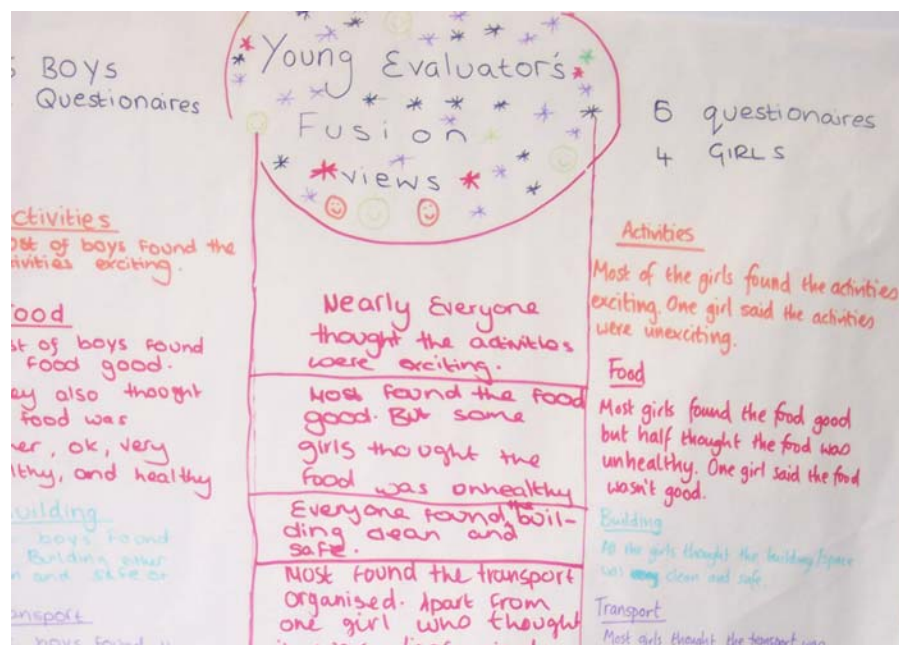 BOYS
Questionaires
Young Evaluator's
Fusion
views
6 questionaires
4 GIRLS
ctivities
ost of boys found the
ivities exciting.
ood
st of boys found
food good.
ey also thought
food was
her, ok, very
lthy, and healthy
uilding
boys found
Building either
n and safe or
ansport
boys found
Nearly Everyone
thought the activities
were exciting.
Most found the food
good. But some
girls thought the
food was unhealthy
Everyone found the buil-
ding clean and
safe.
Most found the transport
organised. Apart from
one girl who thought
Activities
Most of the girls found the activities
exciting. One girl said the activities
were unexciting.
Food
Most girls found the food good
but half thought the food was
unhealthy. One girl said the food
wasn't good.
Building
All the girls thought the building/space
was clean and safe.
Transport
Most girls thought the transport was